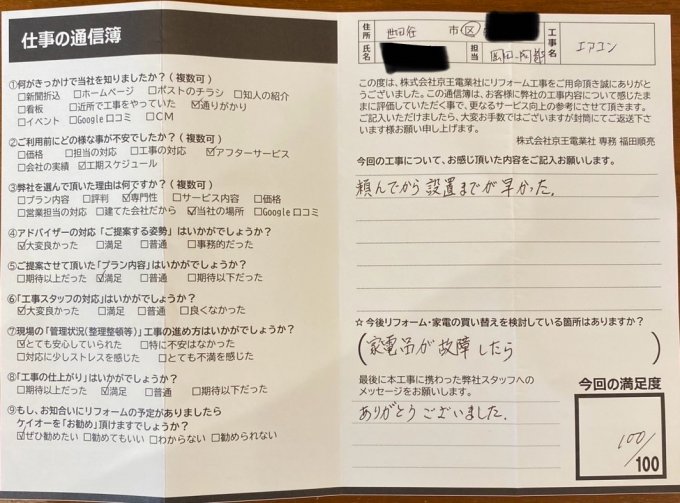 仕事の通信簿
①何がきっかけで当社を知りましたか？(複数可)
□新聞折込 □ホームページ □ポストのチラシ □知人の紹介
□看板 □近所で工事をやっていた ☑通りがかり
□イベント □Google口コミ □CM
②ご利用前にどの様な事が不安でしたか？(複数可)
□価格 □担当の対応 □工事の対応 ☑アフターサービス
□会社の実績 ☑工期スケジュール
③弊社を選んで頂いた理由は何ですか？(複数可)
□プラン内容 □評判 ☑専門性 □サービス内容 □価格
□営業担当の対応 □建てた会社だから ☑当社の場所 □Google口コミ
④アドバイザーの対応「ご提案する姿勢」はいかがでしょうか？
☑大変良かった □満足 □普通 □事務的だった
⑤ご提案させて頂いた「プラン内容」はいかがでしょうか？
□期待以上だった ☑満足 □普通 □期待以下だった
⑥「工事スタッフの対応」はいかがでしょうか？
☑大変良かった □満足 □普通 □良くなかった
⑦現場の「管理状況(整理整頓等)」工事の進め方はいかがでしょうか？
☑とても安心していられた □特に不安はなかった
□対応に少しストレスを感じた □とても不満を感じた
⑧「工事の仕上がり」はいかがでしょうか？
□期待以上だった ☑満足 □普通 □期待以下だった
⑨もし、お知合いにリフォームの予定がありましたら
ケイオーを「お勧め」頂けますでしょうか？
☑ぜひ勧めたい □勧めてもいい □わからない □勧められない
住所 世田谷 市区
氏名 担当
工事名 エアコン
この度は、株式会社京王電業社にリフォーム工事をご用命頂き誠にありがとうございました。この通信簿は、お客様に弊社の工事内容について感じたままに評価していただく事で、更なるサービス向上の参考にさせて頂きます。
ご記入いただけましたら、大変お手数ではございますが封筒にてご返送下さいます様お願い申し上げます。
株式会社京王電業社 専務 福田順亮
今回の工事について、お感じ頂いた内容をご記入お願いします。
頼んでから設置までが早かった.
☆今後リフォーム・家電の買い替えを検討している箇所はありますか？
(家電品が故障したら)
最後に本工事に携わった弊社スタッフへの
メッセージをお願いします。
ありがとうございました.
今回の満足度
100/
100